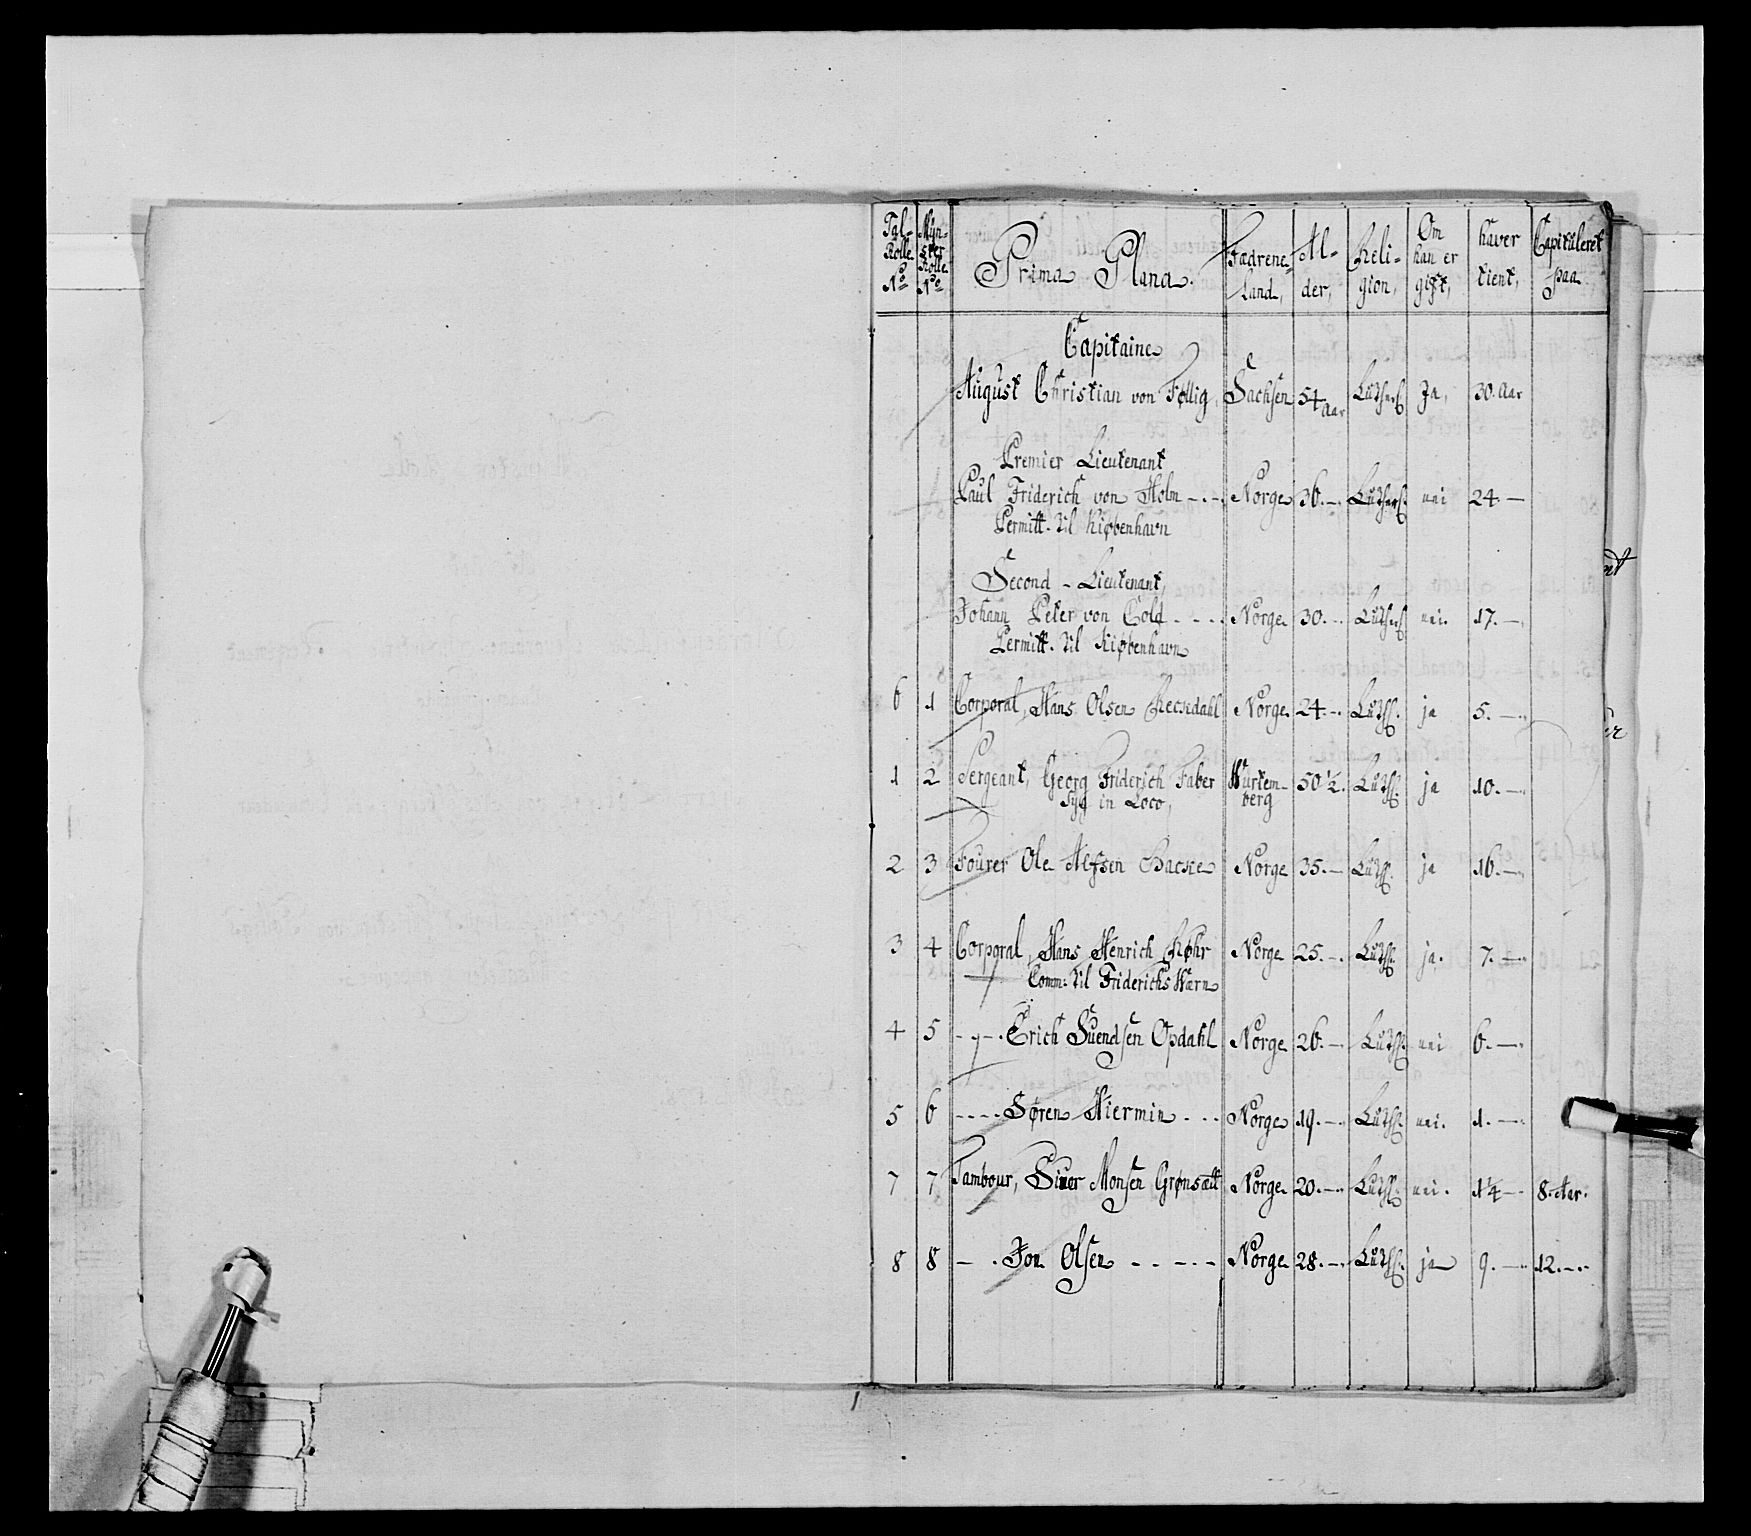 Tal-Rolle No | Mynster Rolle No | Prima Plana. | Fædrene-land, | Al-der, | Reli-gion, | Om han er gift, | haver tient, | Capituleret paa
Capitaine
August Christian von Føllig, | Sachsen | 54 Aar | Luthersk | Ja, | 30. Aar
Premier Lieutenant
Paul Friderich von Holm - . - . | Norge | 36. - . | Luthersk. | nei | 24. -
Permitt. til Kiøbenhavn
Second - Lieutenant,
Johann Peter von Cold . . . . | Norge | 30. - . | Luthersk | nei. | 17. - .
Permitt. til Kiøbenhavn
6 | 1 | Corporal, Hans Olsen | Norge. | 24. - . | Luth. | ja | 5. - .
1 | 2 | Sergeant, Georg Friderich Faber | Würtem-berg | 50 1/2. | Luth. | ja | 10. - .
Syg in Loco,
2 | 3 | Fourer Ole Alfsen Backe | Norge | 35. - | Luth. | ja | 16. - .
3 | 4 | Corporal, Hans Henrich Røhr | Norge | 25. - . | Luth. | ja. | 7. - .
Comm: til Friderichs Wærn
4 | 5 | - . - . Erich Suendsen Opdahl | Norge | 26. - . | Luth. | nei | 6. - .
5 | 6 | - . . . Søren Hiermin . . . | Norge | 19. - . | Luth. | nei. | 1. - .
7 | 7 | Tambour, Siuer Monsen Grønsætt | Norge | 20. - . | Luth. | nei. | 1 1/4 - . | 8. Aar.
8 | 8 | - . Jon Olsen . . - . - . - | Norge | 28. - . | Luth. | ja | 9. - . | 12. - .